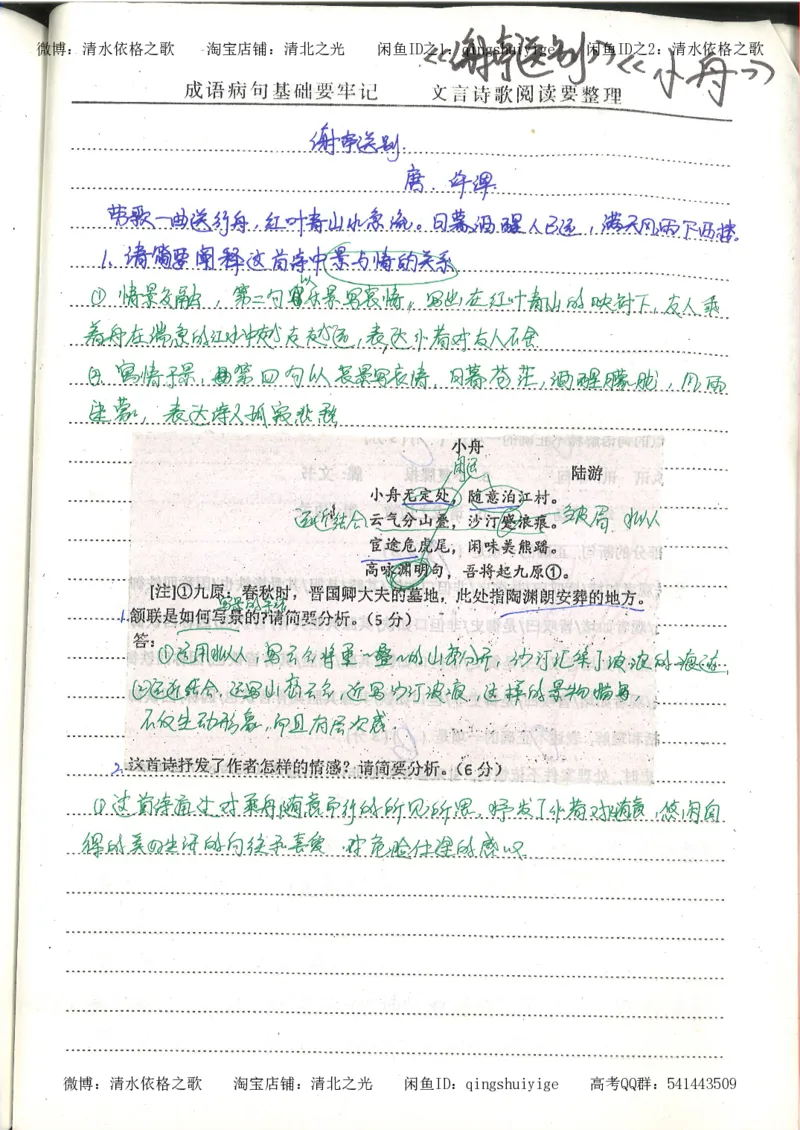 微博：清水依格之歌 淘宝店铺：清北之光 闲鱼ID之1：qingshuiyige 闲鱼ID之2：清水依格之歌
《谢亭送别》《小舟》
成语病句基础要牢记 文言诗歌阅读要整理
谢亭送别
唐 许浑
劳歌一曲送行舟，红叶青山水急流。日暮酒醒人已远，满天风雨下西楼。
1、请简要阐释这首诗中景与情的关系
① 情景交融，第二句以乐景写哀情，写出在红叶青山的映衬下，友人乘
着舟在湍急的江水中越去越远，表达作者对友人不舍
② 寓情于景，第四句以哀景写哀情，日暮苍茫，酒醒朦胧，风雨
迷蒙，表达诗人孤寂悲愁
小舟
陆游
小舟无定处，随意泊江村。
远近结合 云气分山叠，沙汀蹙浪痕。 拟人
官途危虎尾，闲味美熊蹯。
高咏渊明句，吾将起九原①。
[注]①九原：春秋时，晋国卿大夫的墓地，此处指陶渊朗安葬的地方。
1.颔联是如何写景的?请简要分析。（5分）
答：
①运用拟人，写云气将重重叠叠的山峦分开，沙汀汇集了波浪的痕迹
②远近结合，远写山峦云气，近写沙汀波痕，这样的景物描写，
不仅生动形象，而且有层次感
2.这首诗抒发了作者怎样的情感？请简要分析。（6分）
① 这首诗通过对乘舟随意而行的所见所思，抒发了作者对随意，悠闲自
得的美四生活的向往和喜爱，对危险仕途的感叹
微博：清水依格之歌 淘宝店铺：清北之光 闲鱼ID：qingshuiyige 高考QQ群：541443509